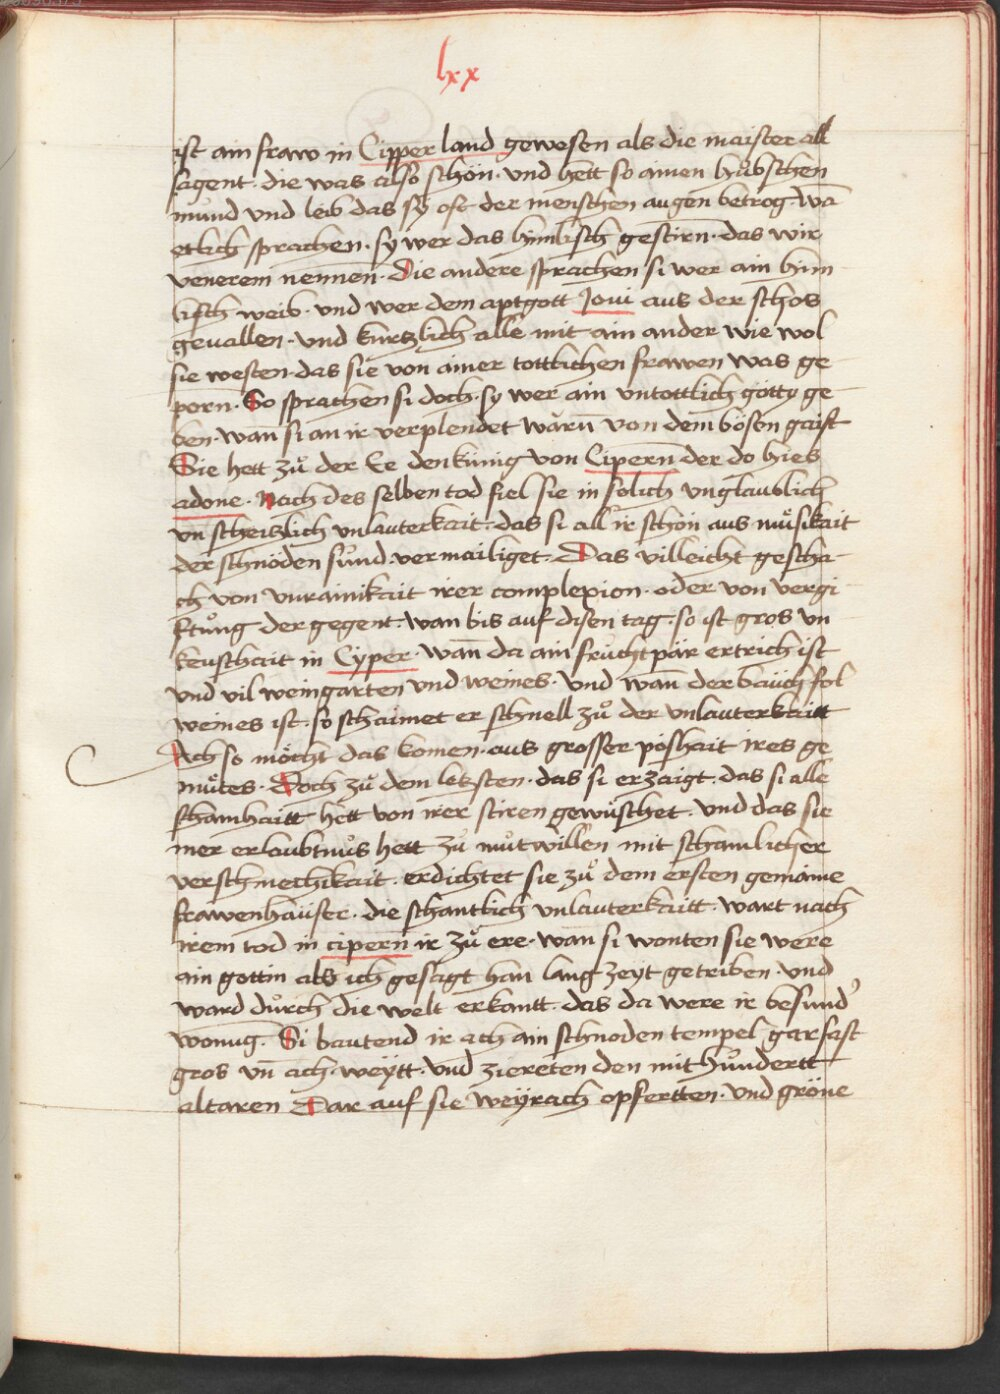 lxx
ist ain fraw in Cipper land gewesen als die maister all
sagent · die was also schön · und hett so ainen hübschen
mund und leib das sÿ oft der menschen augen betrog · wā
etlich sprachen · sy wer das himlisch gestirn · das wir
venerem nennen · Die andere sprachen si wer ain him
lisch weib · und wer dem aptgott Joui aus der schos
geuallen · und kurtzlich alle mit ain ander wie wol
sie westen · das sie von ainer tottlichen frawen was ge
porn · So sprachen si doch · sy wer ain untottlich götty ge
ben · wan si an ir verplendet warn̄ von dem bösen gaist
Sie hett zů der Ee den künig von Cipern der do hies
adone · Nach des selben tod fiel sie in solich unglaublich
un̄ scheuslich unlauterkait · das si all ir schön aus můsikait
der schnöden sünd · vermailiget · Das villeicht gescha
ch von vnrainikait irer complexion · oder von vergi
ftung der gegent · wan bis auf disen tag · so ist gros un
keuschait in Cyper · wan̄ da ain fruchtpär ertrich ist
und vil weingarten und weines · und wan̄ der bauch fol
weines ist · so schaimet er schnell zů der unlauterkaitt
Ach so möcht das komen · aus grosser poshait ires ge
můtes · Doch zů dem letzsten · das si erzaigt · das si alle
schamhaitt hett von irer stiren gewüschet · und das sie
mer erlaubtnůs hett zů můtwillen mit schamlicher
verschmechikait · erdichtet sie zů dem ersten gemaine
frawenhäuser · die schantlich unlauterkaitt · wart nach
irem tod in cipern ir zů ere · wan si wonten sie were
ain gottin als ich gesagt han lang zeyt getriben · und
ward durch die welt erkantt · das da were ir besund'
wonūg · Si bautend ir ach ain schnoden tempel gar fast
gros un̄ ach · weÿtt · und ziereten den mit hundertt
altaren Dar auf sie weÿrach opfertten · und gröne